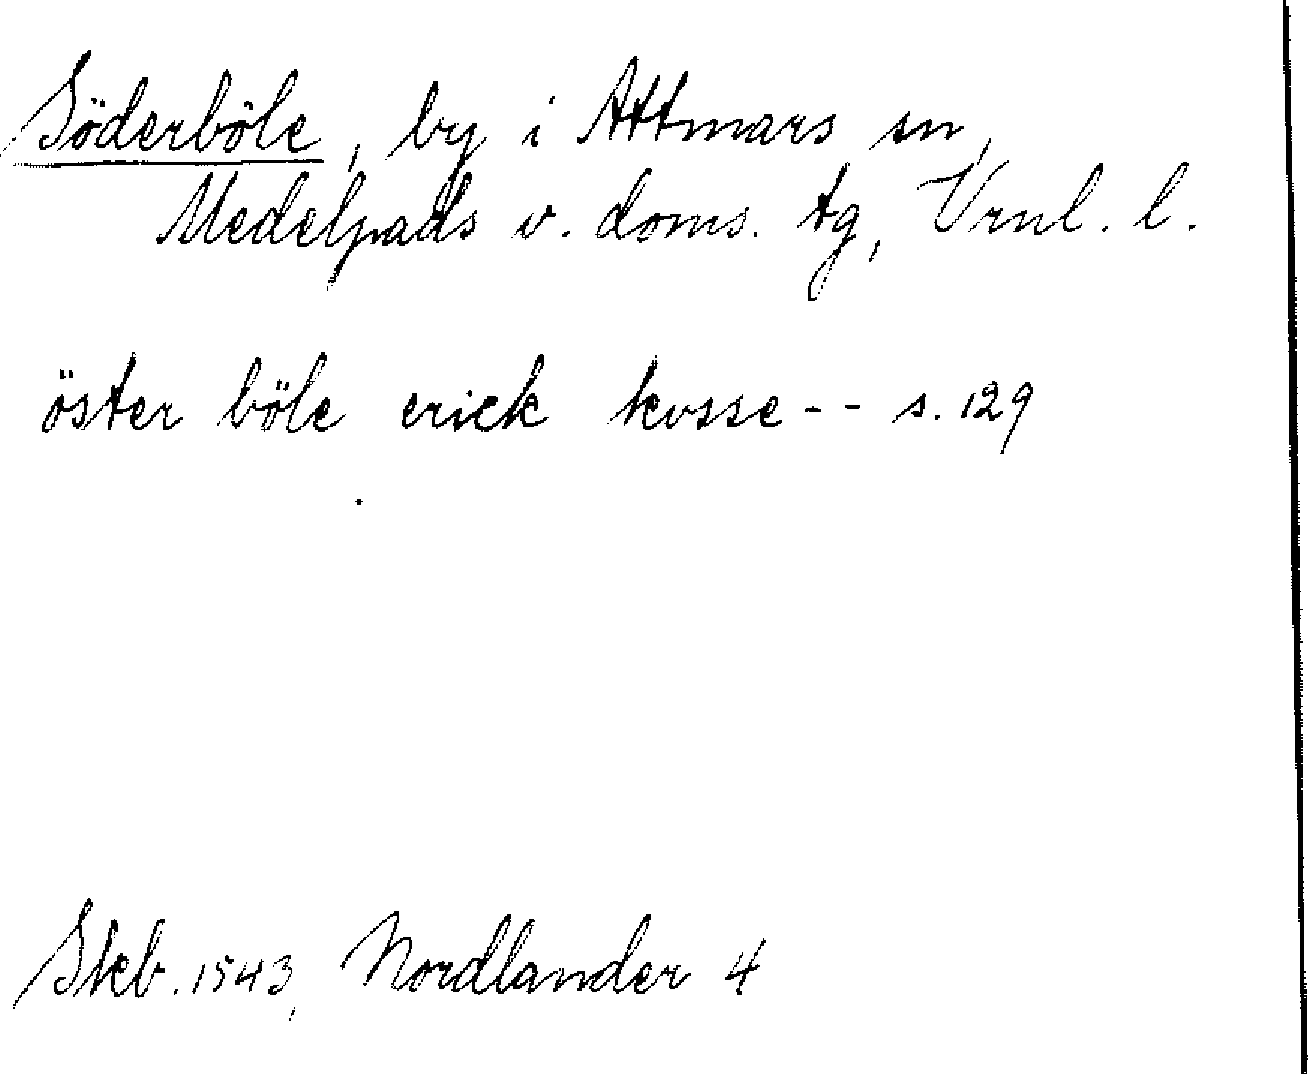 Söderböle, by i Attmars sn,
Medelpads v. doms. tg, Vrnl. l.
öster böle erick kusse -- s. 129
Skb. 1543, Nordlander 4